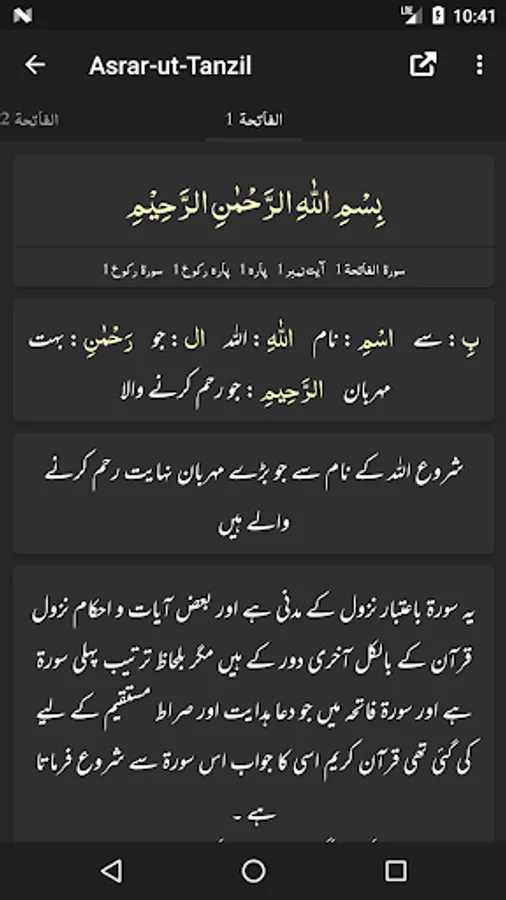 LTE 10:41
Asrar-ut-Tanzil
الفاتحة 1
الفاتحة 2
بِسْمِ اللّٰهِ الرَّحْمٰنِ الرَّحِيْمِ
سورۃ الفاتحة 1 آیت نمبر 1 پارہ 1 پارہ رکوع 1 سورۃ رکوع 1
بِ : سے اسْمِ : نام اللّٰهِ : اللہ ال : جو رَحْمٰنِ : بہت
مہربان الرَّحِيمِ : جو رحم کرنے والا
شروع اللہ کے نام سے جو بڑے مہربان نہایت رحم کرنے
والے ہیں
یہ سورۃ باعتبار نزول کے مدنی ہے اور بعض آیات و احکام نزول
قرآن کے بالکل آخری دور کے ہیں مگر بلحاظ ترتیب پہلی سورۃ
ہے اور سورۃ فاتحہ میں جو دعا ہدایت اور صراط مستقیم کے لیے
کی گئی تھی قرآن کریم اسی کا جواب اس سورۃ سے شروع فرماتا
ہے ۔